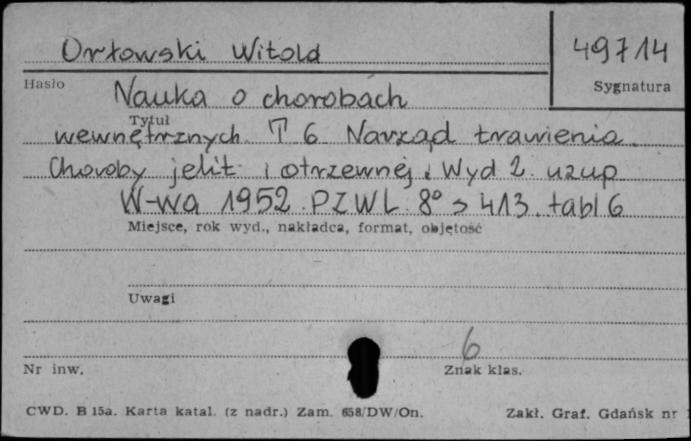 Orłowski Witold
49714
Hasło
Sygnatura
Nauka o chorobach
Tytuł
wewnętrznych. T 6. Narząd trawienia.
Choroby jelit i otrzewnej. Wyd 2. uzup
W-wa 1952. PZWL. 8° s 413. tabl 6
Miejsce, rok wyd., nakładca, format, objętość
Uwagi
6
Nr inw.
Znak klas.
CWD. B 15a. Karta katal. (z nadr.) Zam. 658/DW/On.
Zakł. Graf. Gdańsk nr